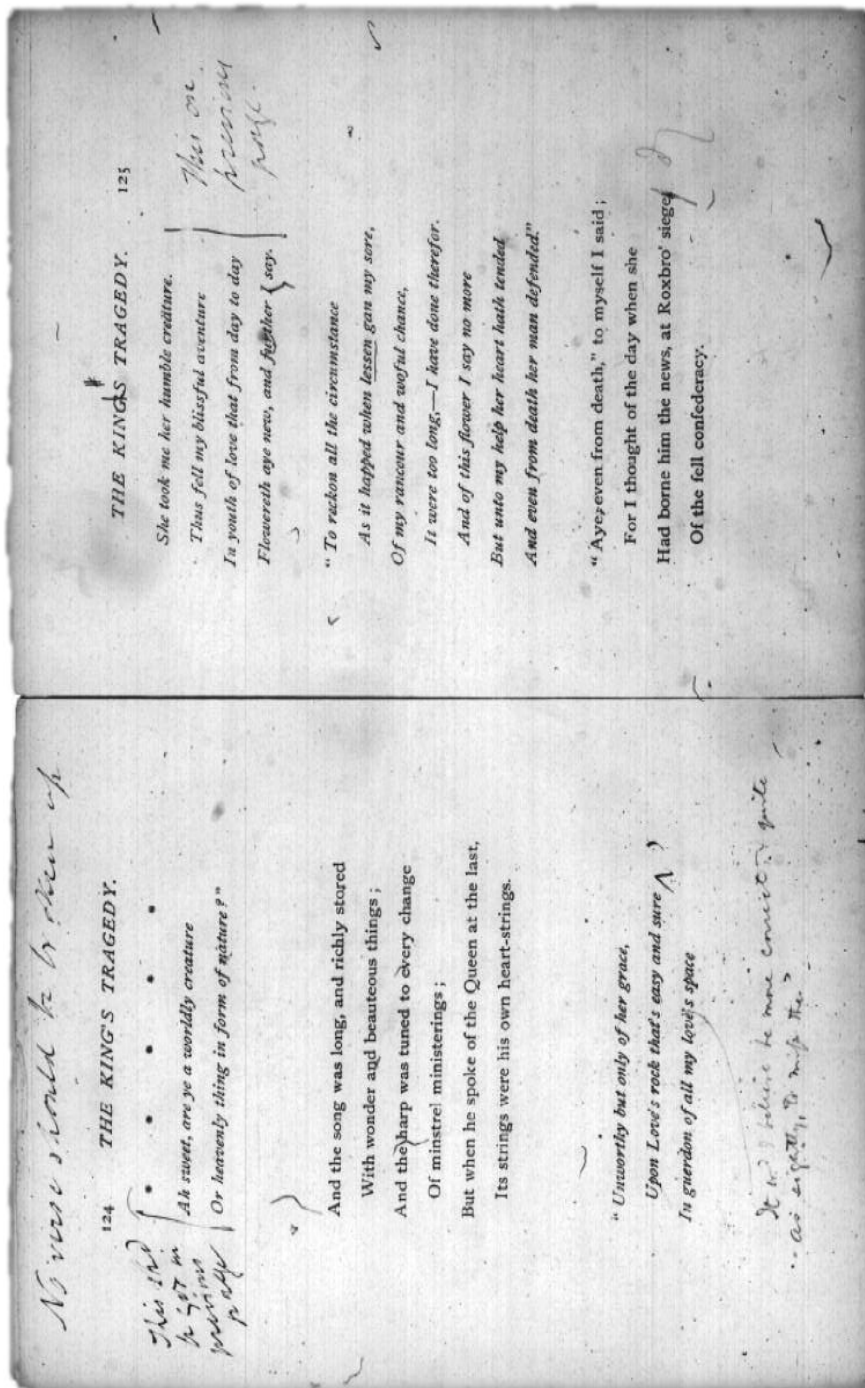 No verse should be broken up
124 THE KING'S TRAGEDY.
This shd
be got in
previous
page
* * * * *
Ah sweet, are ye a worldly creature
Or heavenly thing in form of nature?"
And the song was long, and richly stored
With wonder and beauteous things;
And the harp was tuned to every change
Of minstrel ministerings;
But when he spoke of the Queen at the last,
Its strings were his own heart-strings.
"Unworthy but only of her grace,
Upon Love's rock that's easy and sure
In guerdon of all my love's space
?
It wd I believe be more correct & quite
THE KING'S TRAGEDY. 125
She took me her humble creäture.
Thus fell my blissful aventure
In youth of love that from day to day
Flowereth aye new, and further say.
This on
previous
page.
"To reckon all the circumstance
As it happed when lessen gan my sore,
Of my rancour and woful chance,
It were too long,—I have done therefor.
And of this flower I say no more
But unto my help her heart hath tended
And even from death her man defended."
"Aye, even from death," to myself I said;
For I thought of the day when she
Had borne him the news, at Roxbro' siege
Of the fell confederacy.